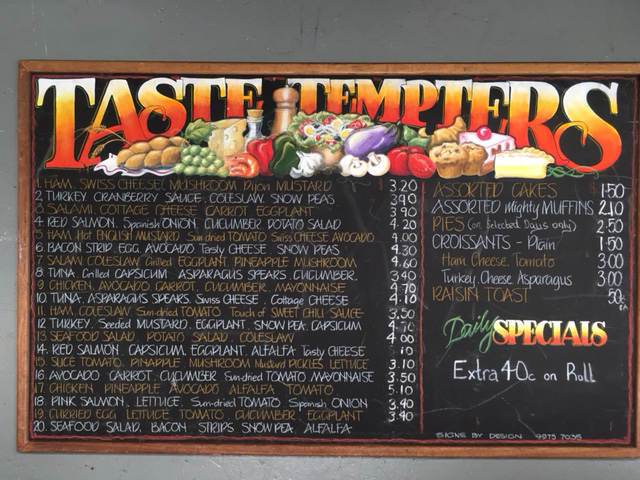 TASTE TEMPTERS
1. HAM. SWISS CHEESE. MUSHROOM Dijon MUSTARD 3.20
2. TURKEY. CRANBERRY SAUCE. COLESLAW. SNOW PEAS
3. SALAMI, COTTAGE CHEESE CARROT EGGPLANT 3.90
4. RED SALMON. Spanish ONION. CUCUMBER. POTATO SALAD 4.20
5. HAM. Hot ENGLISH MUSTARD. Sun dried TOMATO Swiss CHEESE AVOCADO 4.00
6. BACON STRIP. EGG. AVOCADO Tasty CHEESE SNOW PEAS 4.30
7. SALAMI COLESLAW Grilled EGGPLANT. PINEAPPLE MUSHROOM 4.60
8. TUNA. Grilled CAPSICUM ASPARAGUS SPEARS. CUCUMBER. 3.40
9. CHICKEN, AVOCADO CARROT. CUCUMBER. MAYONNAISE 4.70
10. TUNA. ASPARAGUS SPEARS. Swiss CHEESE. Cottage CHEESE 4.10
11. HAM. COLESLAW Sun-dried TOMATO Touch of SWEET CHILI SAUCE 3.50
12. TURKEY. Seeded MUSTARD. EGGPLANT. SNOW PEA. CAPSICUM
13. SEAFOOD SALAD. POTATO SALAD. COLESLAW 4.00
14. RED SALMON. CAPSICUM. EGGPLANT. ALFALFA Tasty CHEESE 10
15. SLICE TOMATO. PINAPPLE MUSHROOM Mustard PICKLES LETTUCE 3.10
16. AVOCADO CARROT CUCUMBER Sun-dried TOMATO MAYONNAISE 3.50
17. CHICKEN PINEAPPLE AVOCADO ALFALFA TOMATO 5.10
18. PINK SALMON. LETTUCE. Sun-dried TOMATO Spanish ONION 3.40
19. CURRIED EGG. LETTUCE. TOMATO. CUCUMBER. EGGPLANT 3.40
20. SEAFOOD SALAD, BACON STRIPS SNOW PEA, ALFALFA
ASSORTED CAKES $ 1.50
ASSORTED Mighty MUFFINS 2.10
PIES (on Selected Days only) 2.50
CROISSANTS - Plain 1.50
Ham. Cheese. Tomato 3.00
Turkey. Cheese. Asparagus 3.00
RAISIN TOAST .50 EA
Daily SPECIALS
Extra 40c on Roll
SIGNS BY DESIGN 9975 7035